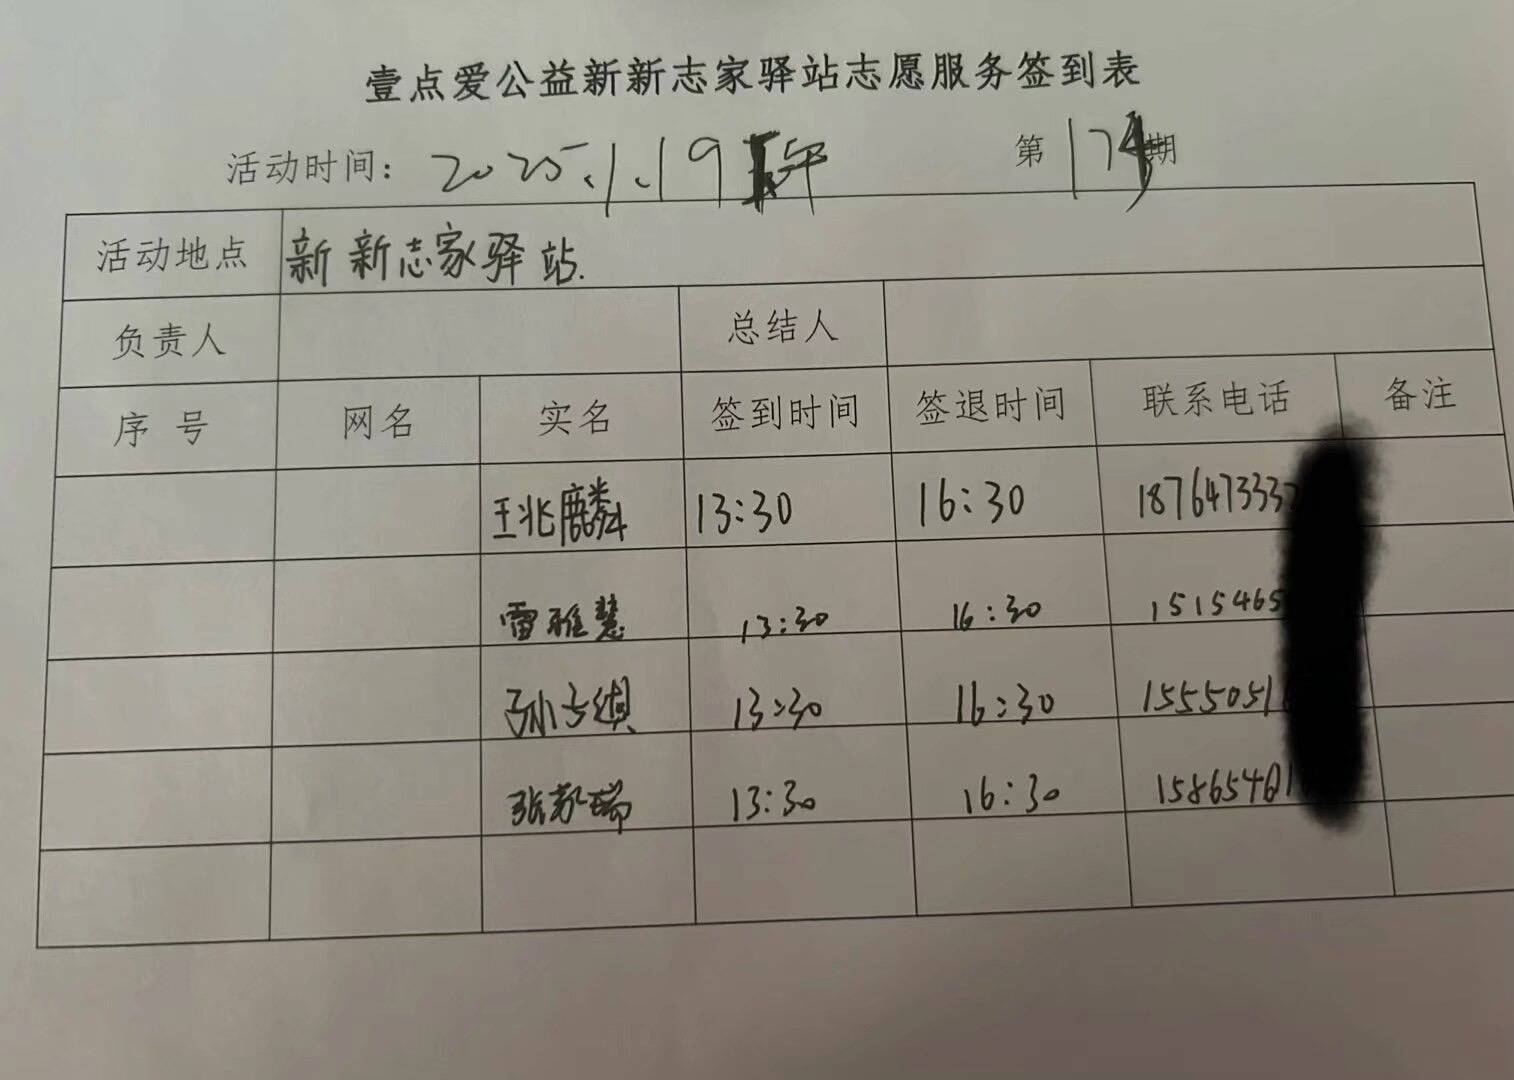 壹点爱公益新新志家驿站志愿服务签到表
活动时间： 2025.1.19 午 第 174 期
活动地点 新新志家驿站.
负责人 总结人
序号 网名 实名 签到时间 签退时间 联系电话 备注
王兆麟 13:30 16:30 187647333
雷雅慧 13:30 16:30 1515465
孙 13:30 16:30 1555051
张 瑞 13:30 16:30 15865461